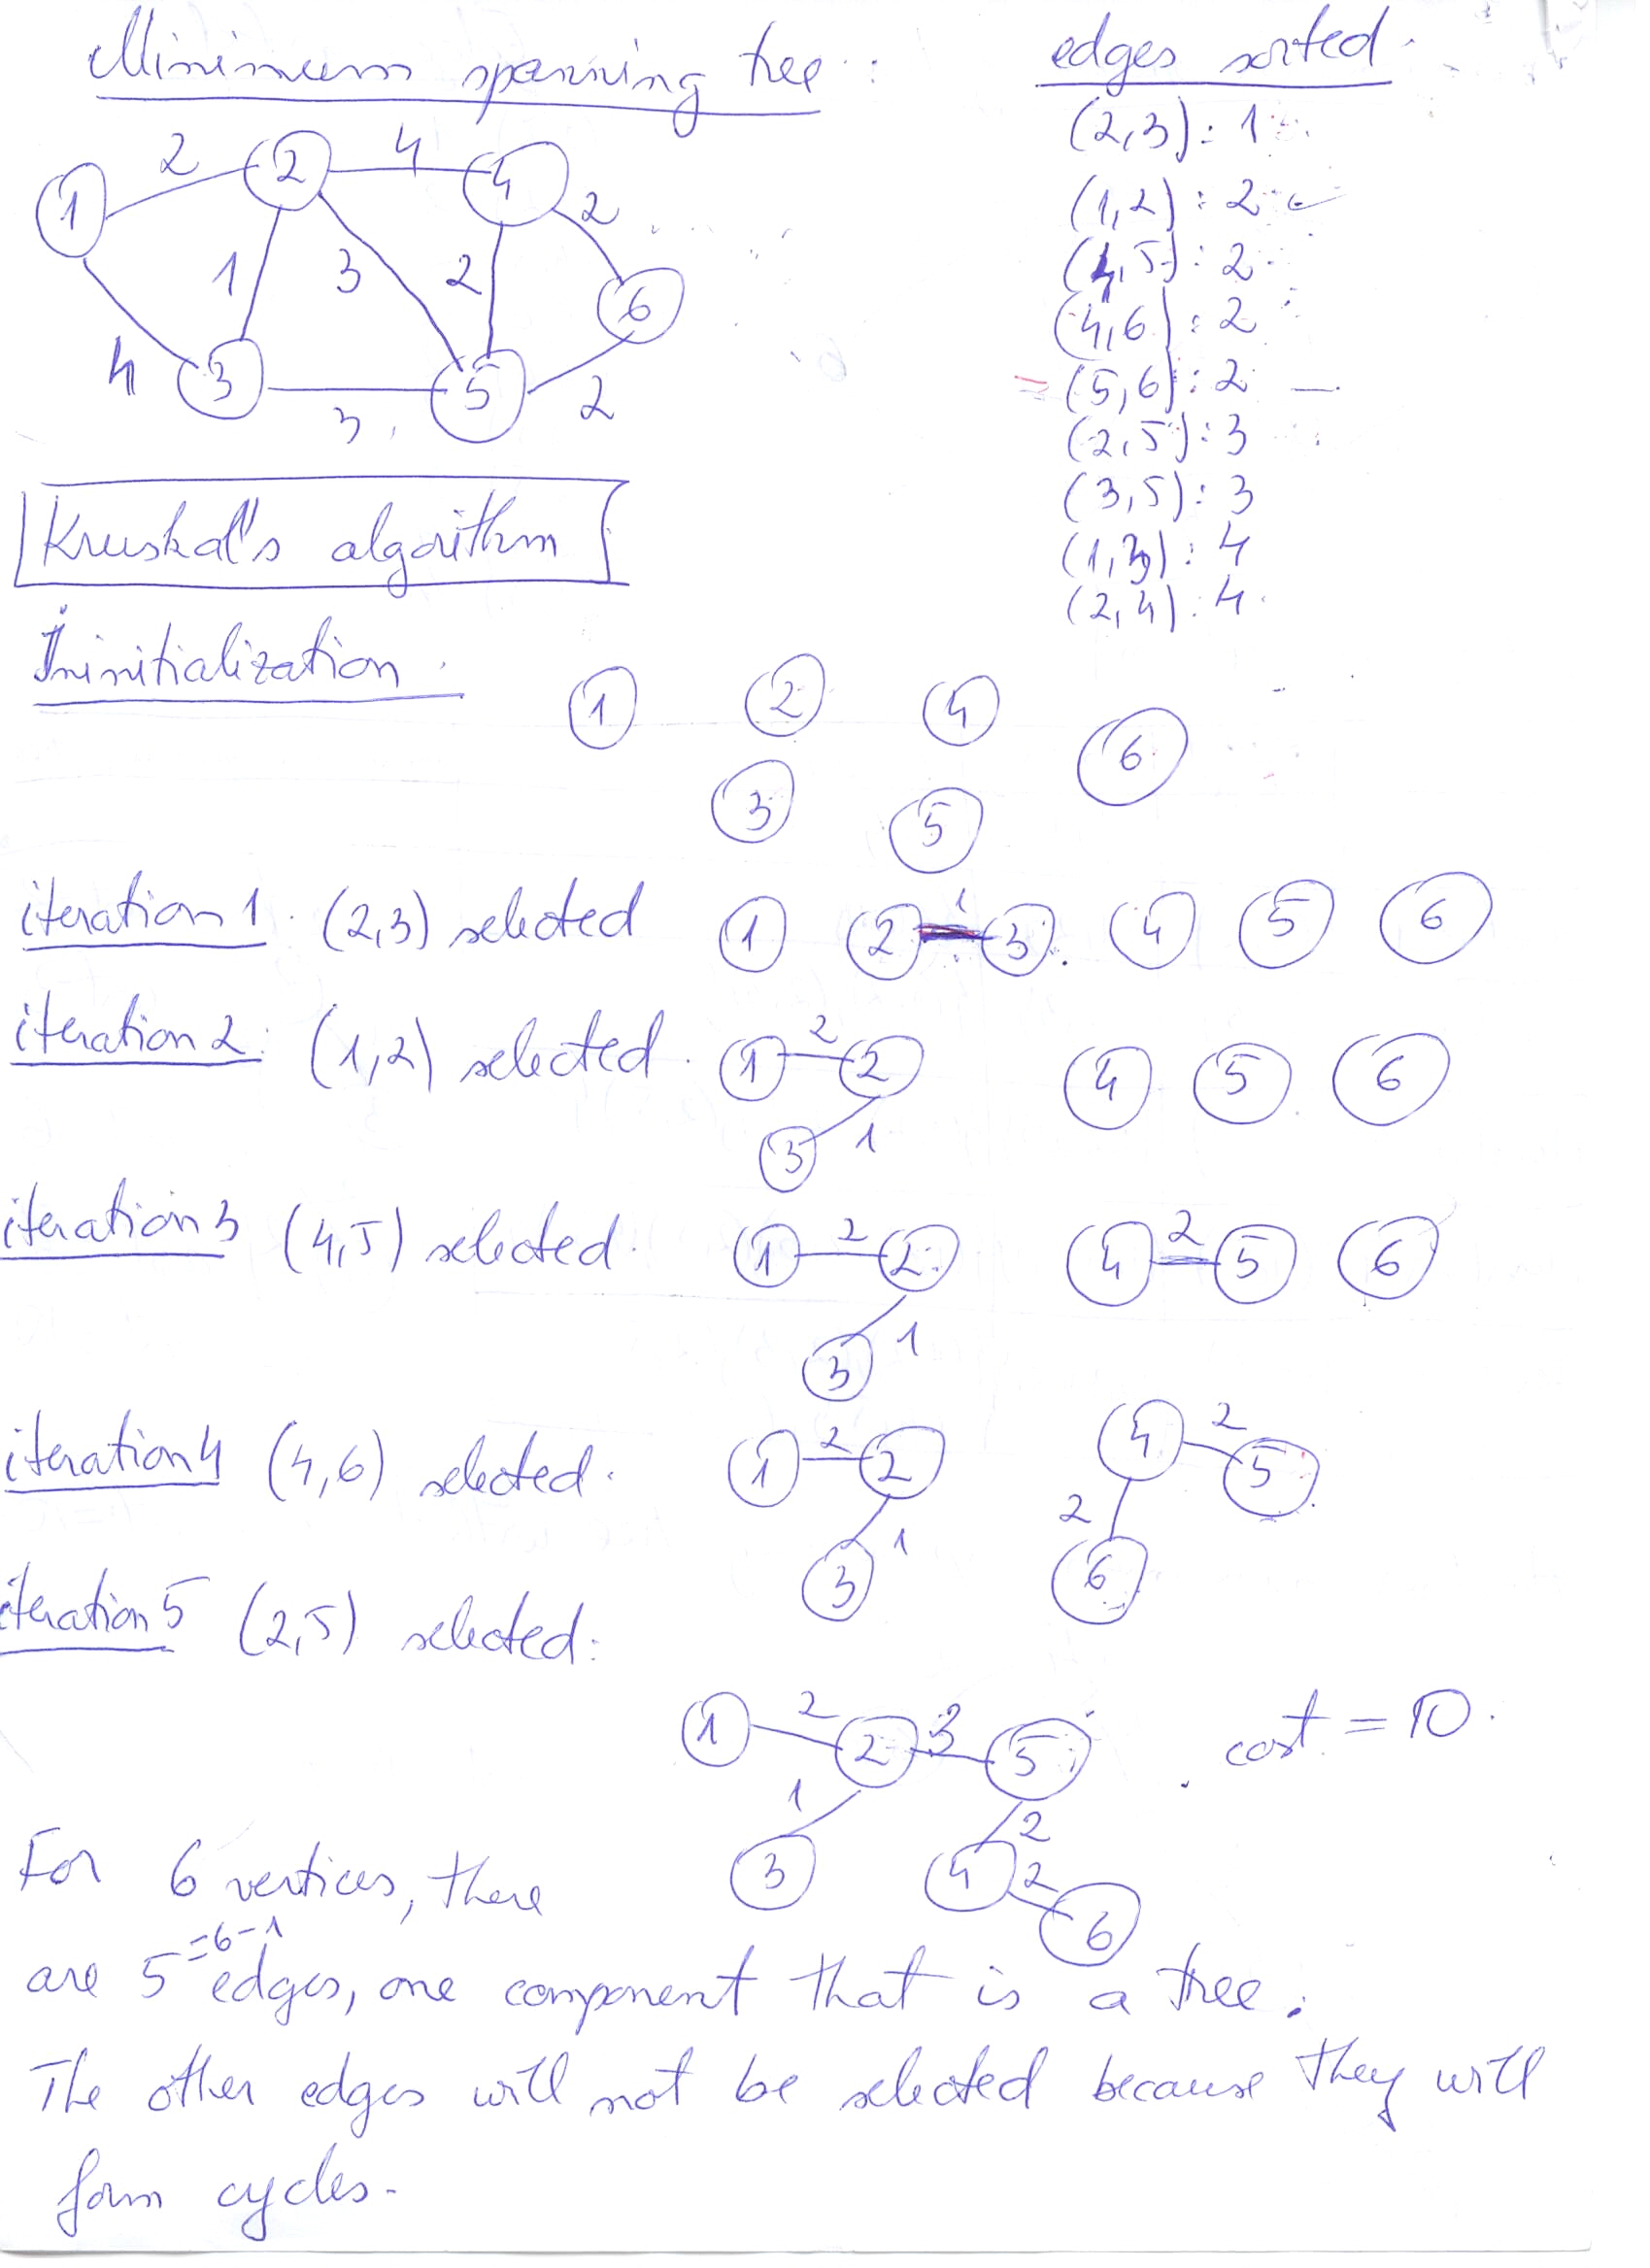 Minimum spanning tree :
2 4
1 2 4 2
1 3 2 6
4 3 5 2
3
edges sorted.
(2,3): 1
(1,2): 2
(4,5): 2
(4,6): 2
(5,6): 2
(2,5): 3
(3,5): 3
(1,3): 4
(2,4): 4
Kruskal's algorithm
Ininitialization.
1 2 4
6
3 5
iteration 1. (2,3) selected 1 2 1 3. 4 5 6
iteration 2: (1,2) selected. 1 2 2 4 5 6
3 1
iteration 3 (4,5) selected. 1 2 2 4 2 5 6
3 1
iteration 4 (4,6) selected. 1 2 2 4 2 5
3 1 2 6
iteration 5 (2,5) selected:
1 2 2 3 5 cost = 10.
1 2
3 4 2
6
For 6 vertices, there
=6-1
are 5 edges, one component that is a tree.
The other edges will not be selected because they will
form cycles.